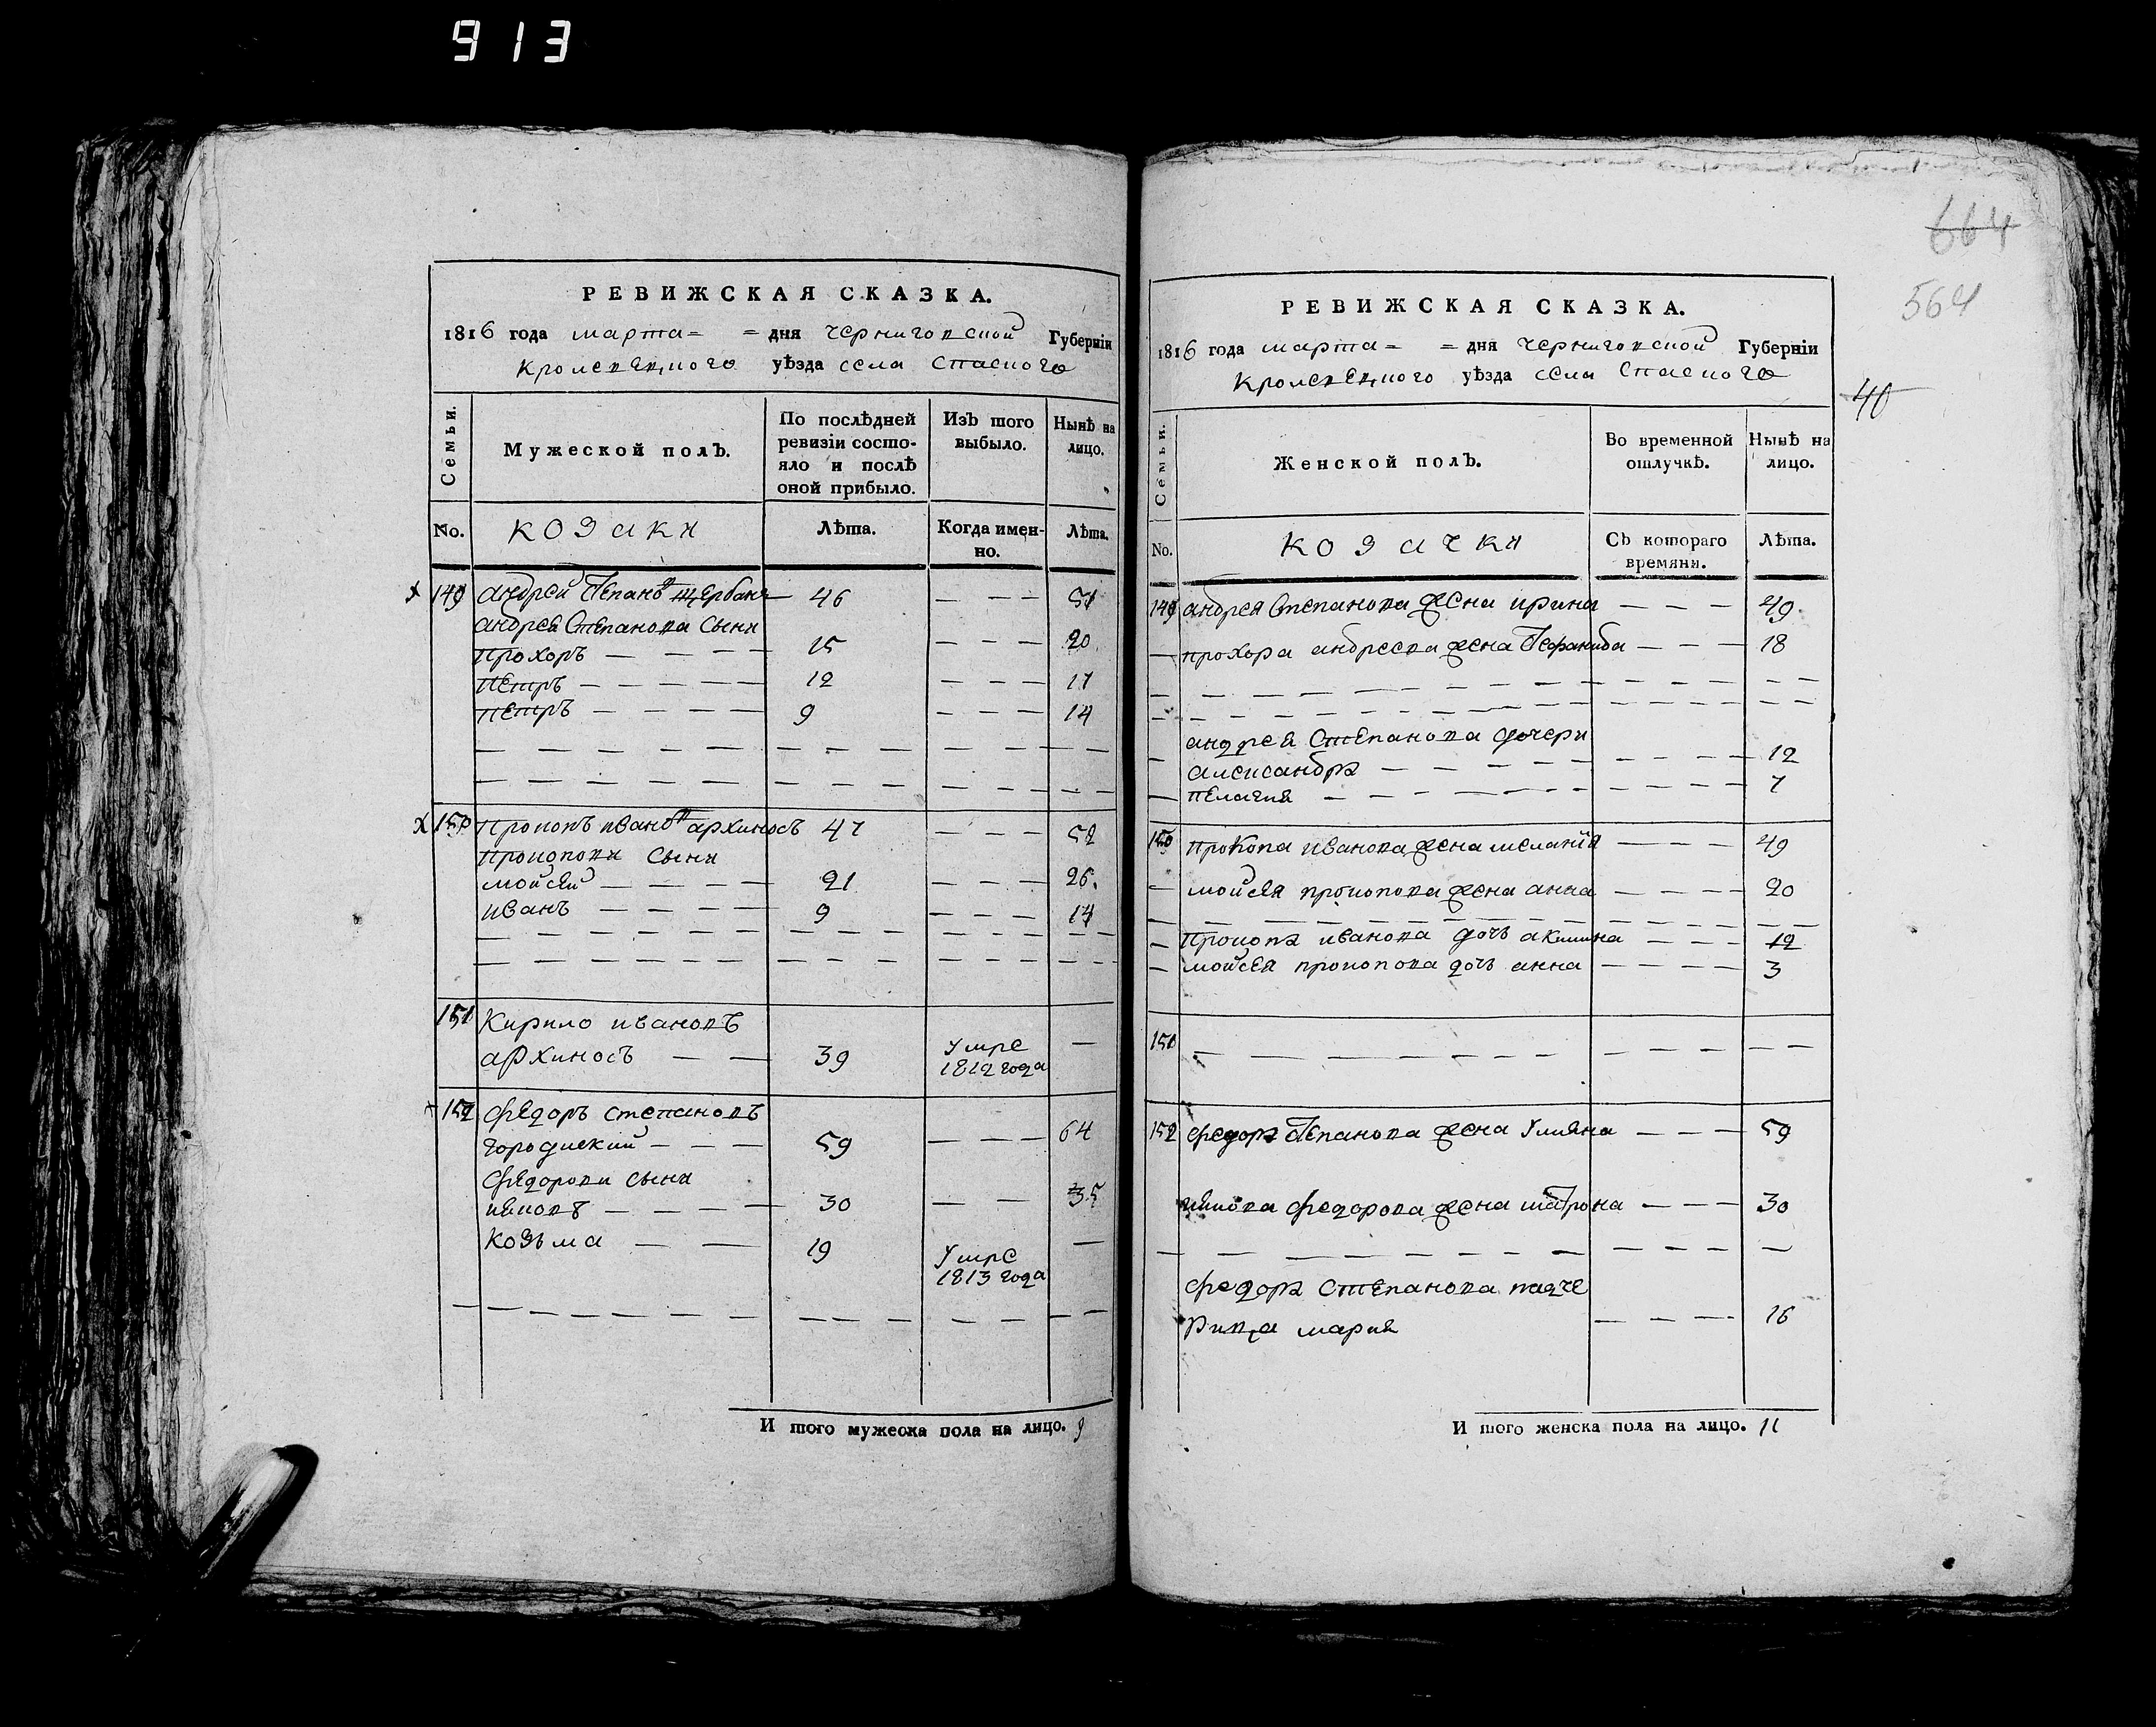 913
664
564
40
РЕВИЖСКАЯ СКАЗКА.
1816 года марта = = дня черниговской Губернїи
Кролевецкого уѣзда села Спаского
Семьи.
Мужеской полъ.
По послѣдней ревизїи состояло и послѣ оной прибыло.
Изъ того выбыло.
Нынѣ на лицо.
No.
козаки
Лѣта.
Когда именно.
Лѣта.
149 андрей Степановъ щербань 46 51
андрея Степанова сыни
прохоръ 15 20
петръ 12 17
петръ 9 14
150 Прокопъ ивановъ архиносъ 47 52
прокопови сыни
мойсей 21 26
иванъ 9 14
151 Кирило ивановъ
архиносъ 39 умре
1812 года
152 федоръ степановъ
городиский 59 64
федорови сыни
30 35
козьма 19 умре
1813 года
И того мужеска пола на лицо. 9
РЕВИЖСКАЯ СКАЗКА.
1816 года марта = = дня черниговской Губернїи
Кролевецкого уѣзда села Спаского
Семьи.
Женской полъ.
Во временной отлучкѣ.
Нынѣ на лицо.
No.
козачки
Съ котораго времяни.
Лѣта.
149 андрея Степанова жена ирина 49
прохора андреева жена Стефанида 18
андрея Степанова дочери
александра 12
пелагия 7
150 прокопа иванова жена меланїя 49
мойсея прокопова жена анна 20
прокопа иванова дочь акилина 12
мойсея прокопова дочь анна 3
151
152 федора Степанова жена улияна 59
федорова жена матрона 30
федора Степанова падче
рица мария 16
И того женска пола на лицо. 11